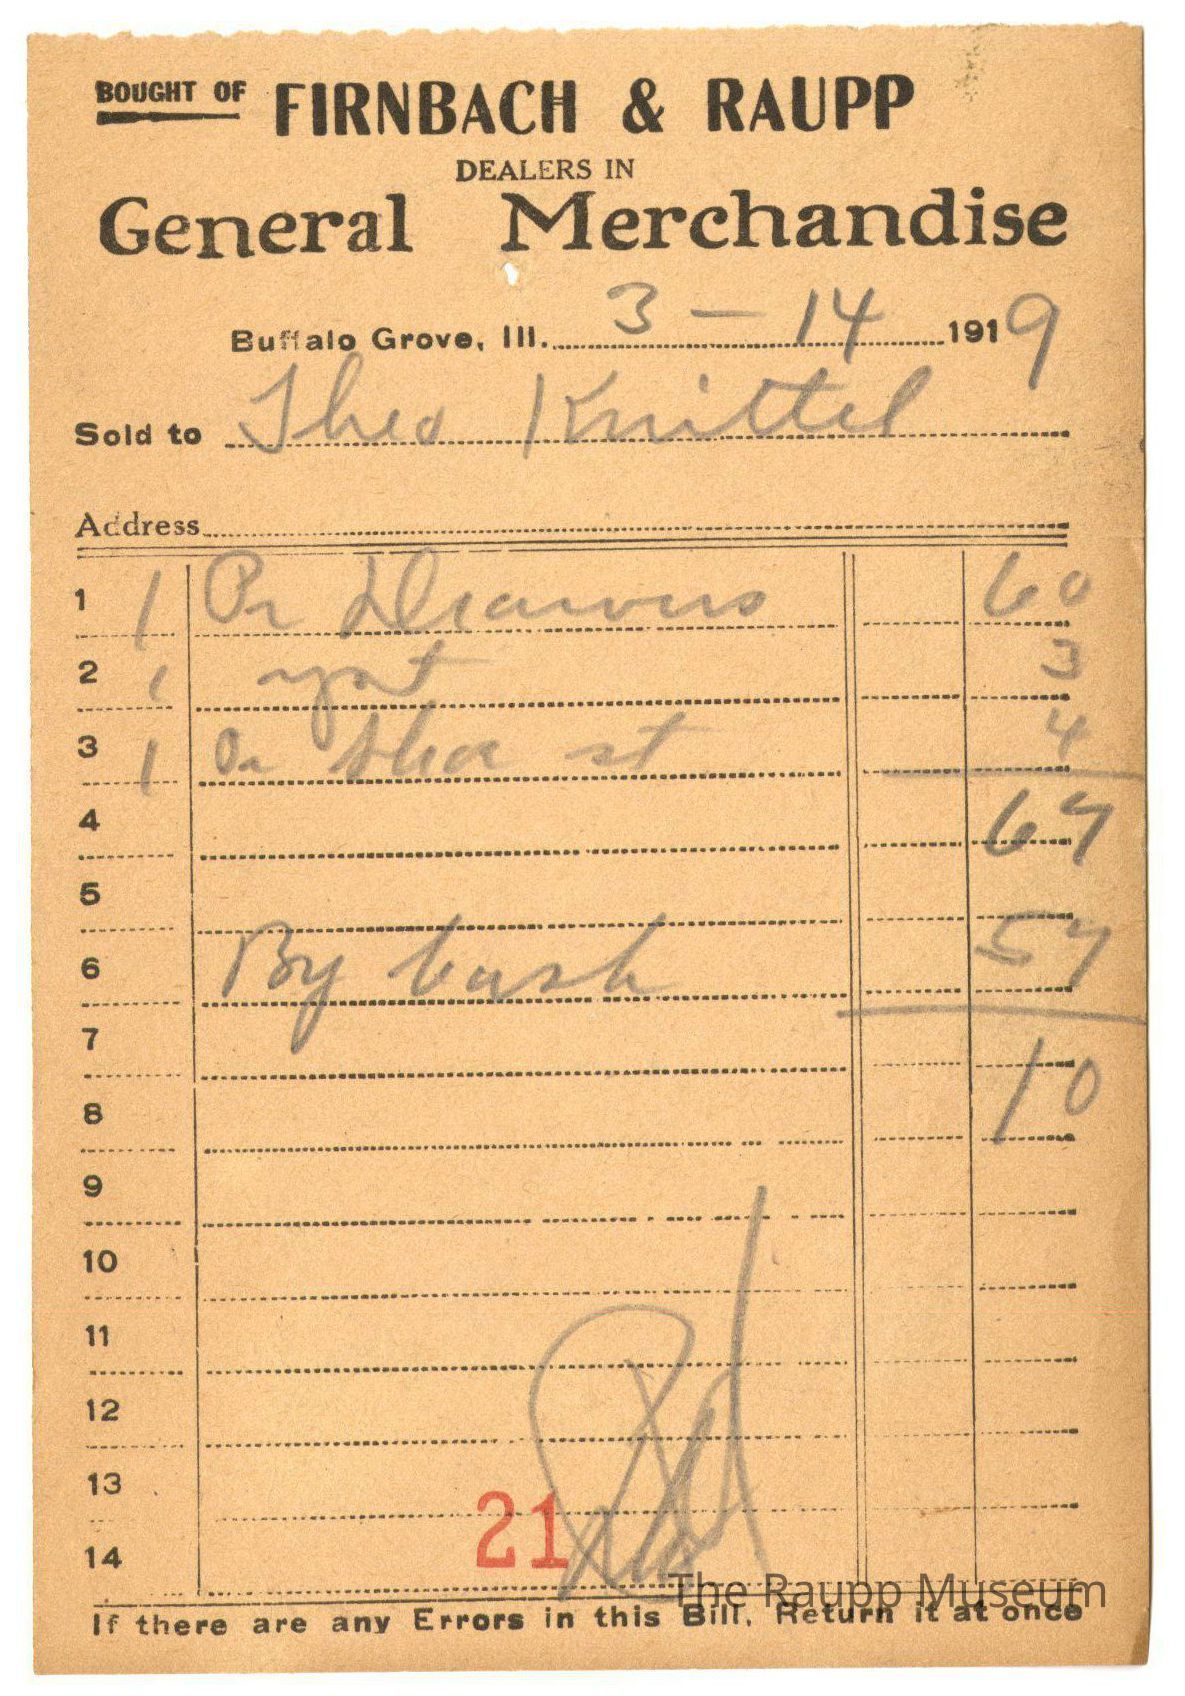 BOUGHT OF FIRNBACH & RAUPP
DEALERS IN
General Merchandise
Buffalo Grove, Ill. 3 - 14 1919
Sold to Theo Knittel
Address
1 1 Pr Drawers 60
2 1 yst 3
3 1 Pr Shoe st 4
4 67
5
6 By Cash 57
7
8 10
9
10
11
12
13
14 21
Pd
The Raupp Museum
If there are any Errors in this Bill, Return it at once